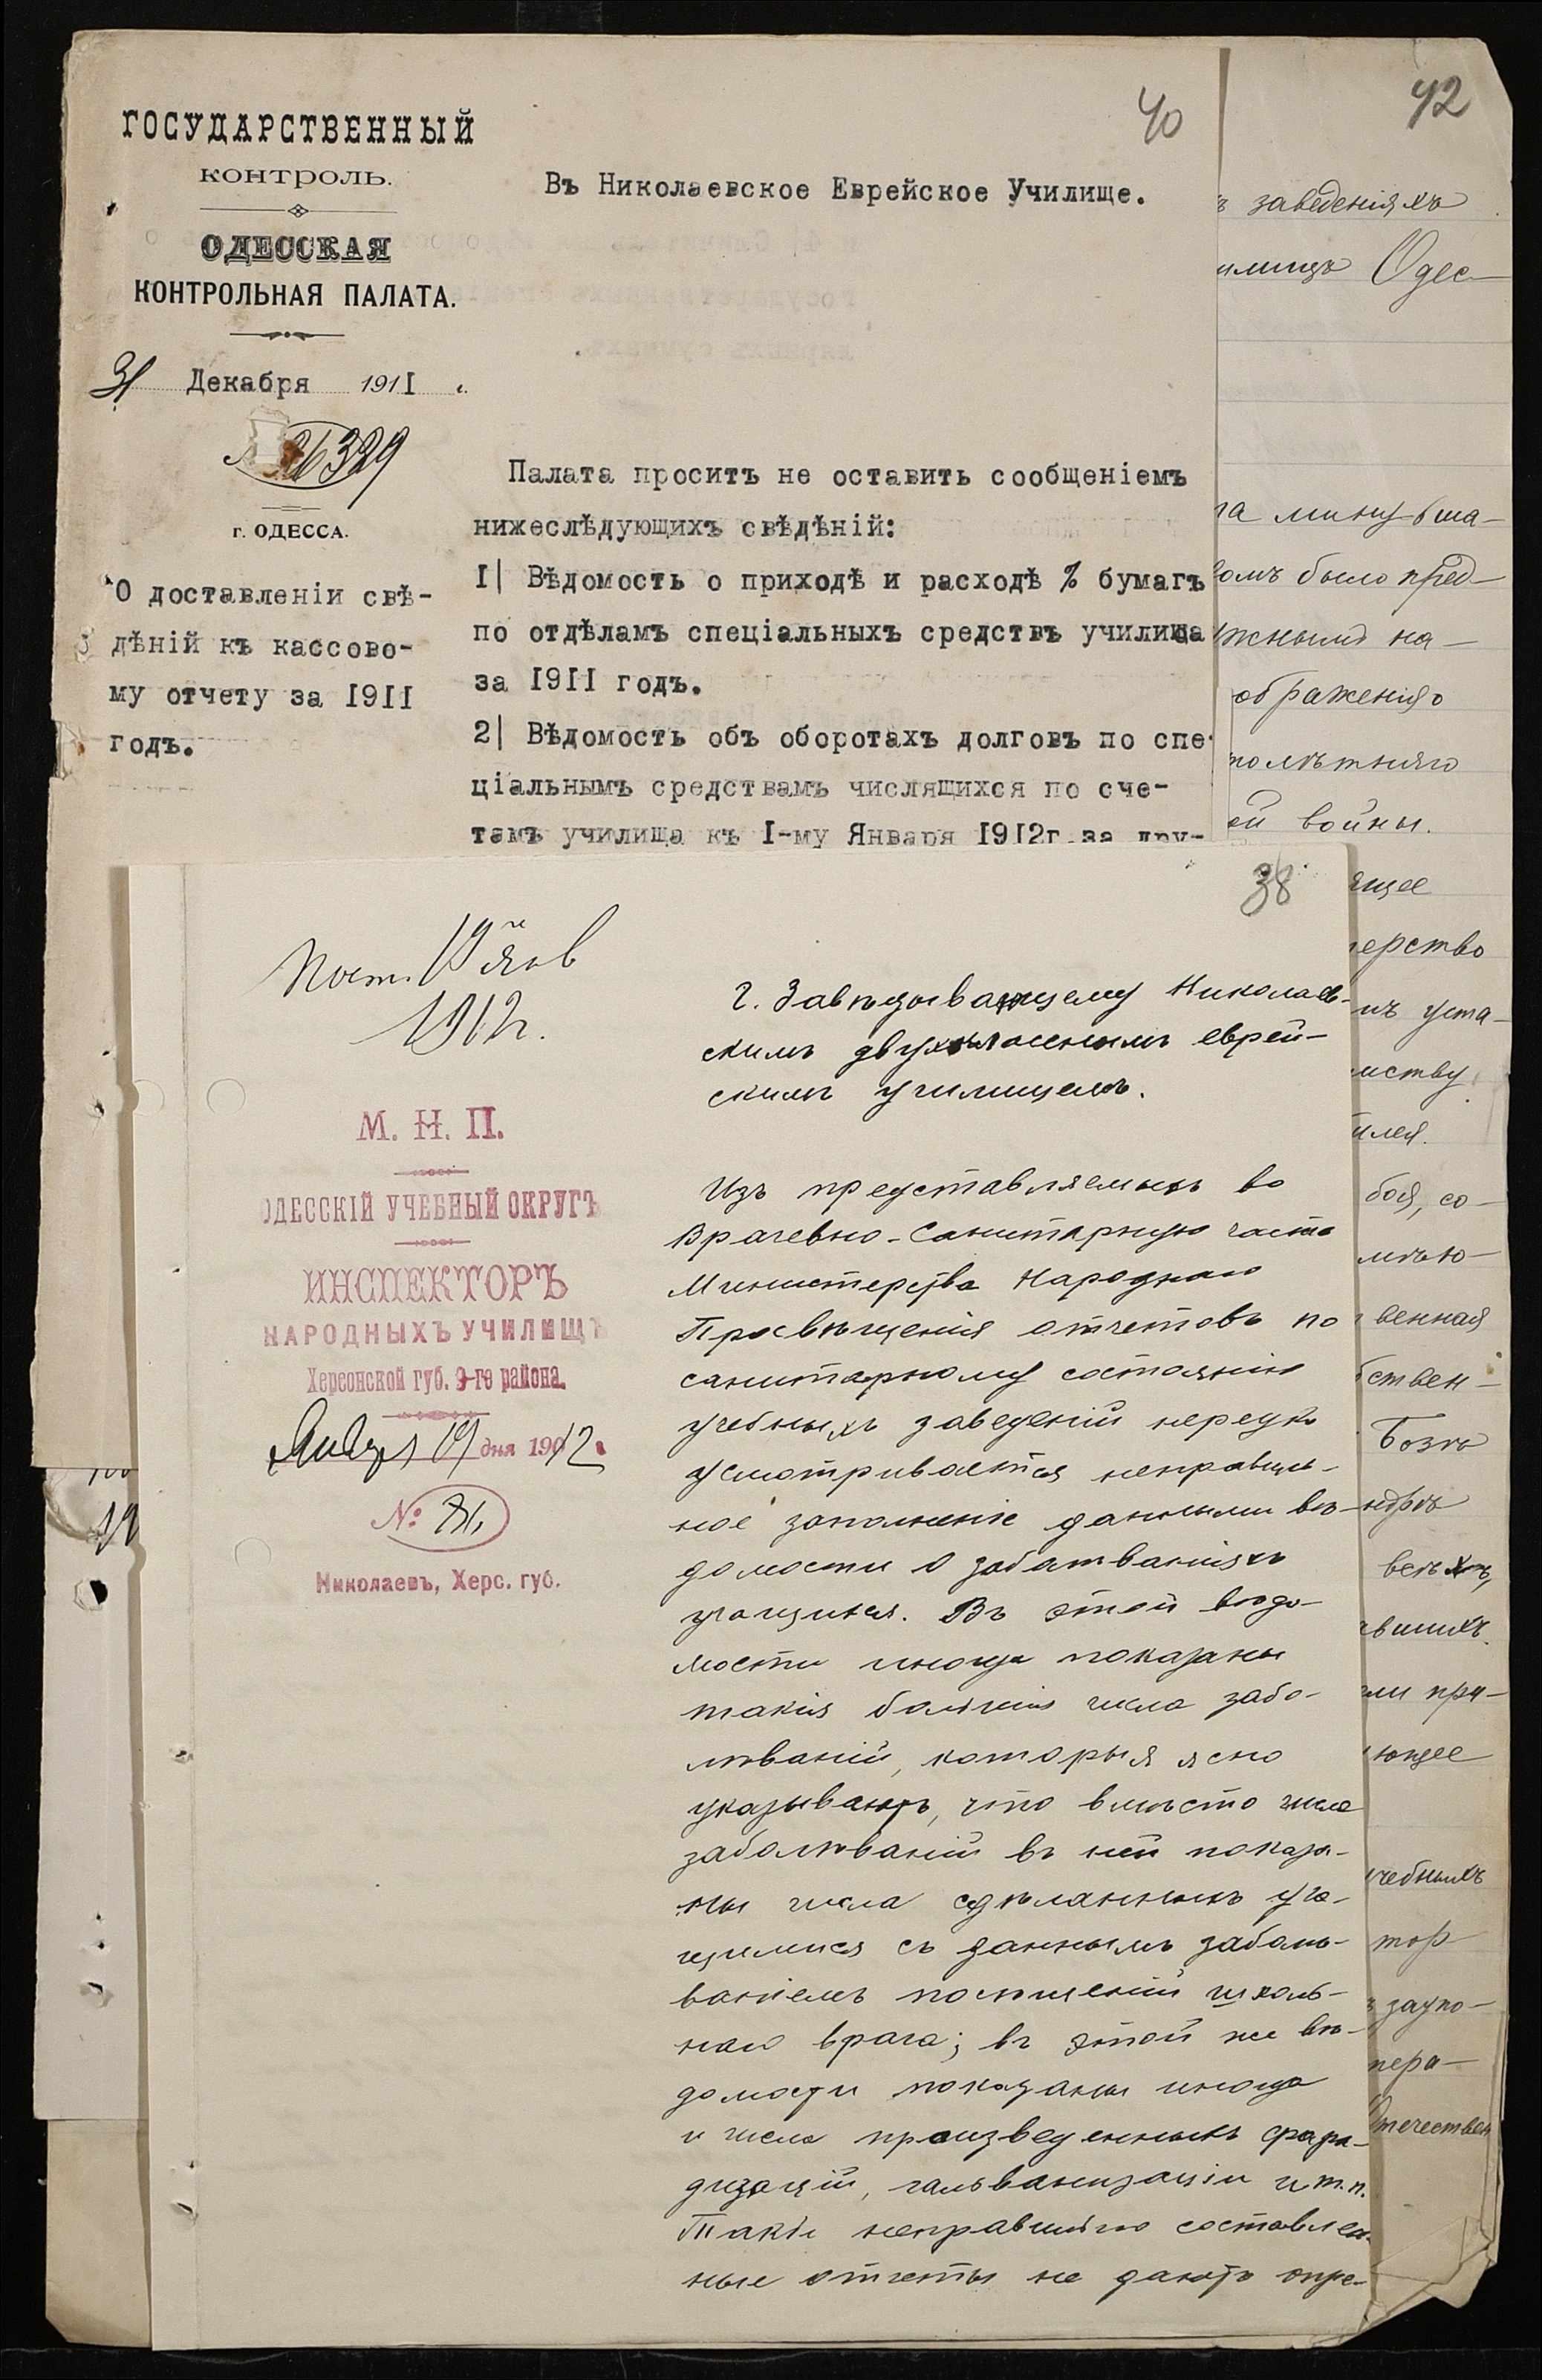 40
42
ГОСУДАРСТВЕННЫЙ
КОНТРОЛЬ.
ОДЕССКАЯ
КОНТРОЛЬНАЯ ПАЛАТА.
31 Декабря 1911 г.
26329
г. ОДЕССА.
О доставленіи свѣ-
дѣній къ кассово-
му отчету за 1911
годъ.
Въ Николаевское Еврейское Училище.
Палата проситъ не оставить сообщеніемъ
нижеслѣдующихъ свѣдѣній:
I| Вѣдомость о приходѣ и расходѣ % бумагъ
по отдѣламъ спеціальныхъ средствъ училища
за 1911 годъ.
2| Вѣдомость объ оборотахъ долговъ по спе-
ціальнымъ средствамъ числящихся по сче-
тамъ училища къ I-му Января 1912г.за дру-
ъ заведеніяхъ
илищъ Одес-
га минувша-
омъ было пред-
жнымъ на-
ображенія о
толѣтняго
ой войны.
ящее
терство
съ уста-
мству
илея.
боя, со-
венная
ствен-
всѣхъ,
вшихъ
ли при-
ющее
учебныхъ
тор
пера-
Отечествен
38
Пост. 19 Янв
1912г.
М. Н. П.
ОДЕССКІЙ УЧЕБНЫЙ ОКРУГЪ
ИНСПЕКТОРЪ
НАРОДНЫХЪ УЧИЛИЩЪ
Херсонской губ. 9-го района.
Января 19 дня 1912
№ 81
Николаевъ, Херс. губ.
Г. Завѣдывающему Николаев-
скимъ двухкласснымъ еврей-
скимъ училищемъ.
Изъ представляемыхъ во
Врачебно-Санитарную часть
Министерства Народнаго
Просвѣщенія отчетовъ по
санитарному состоянію
учебныхъ заведеній нерѣдко
усматривается неправиль-
ное заполненіе данными вѣ-
домости о заболѣваніяхъ
учащихся. Въ этой вѣдо-
мости иногда показаны
такія большія числа забо-
лѣваній, которыя ясно
указываютъ, что вмѣсто числа
заболѣваній въ ней показа-
ны числа сдѣланныхъ уча-
щимися съ даннымъ заболѣ-
ваніемъ посѣщеній школь-
наго врача; въ этой же вѣ-
домости показаны иногда
и числа произведенныхъ фара-
дизацій, гальванизаціи и т.п.
Такіе неправильно составлен-
ные отчеты не даютъ опре-